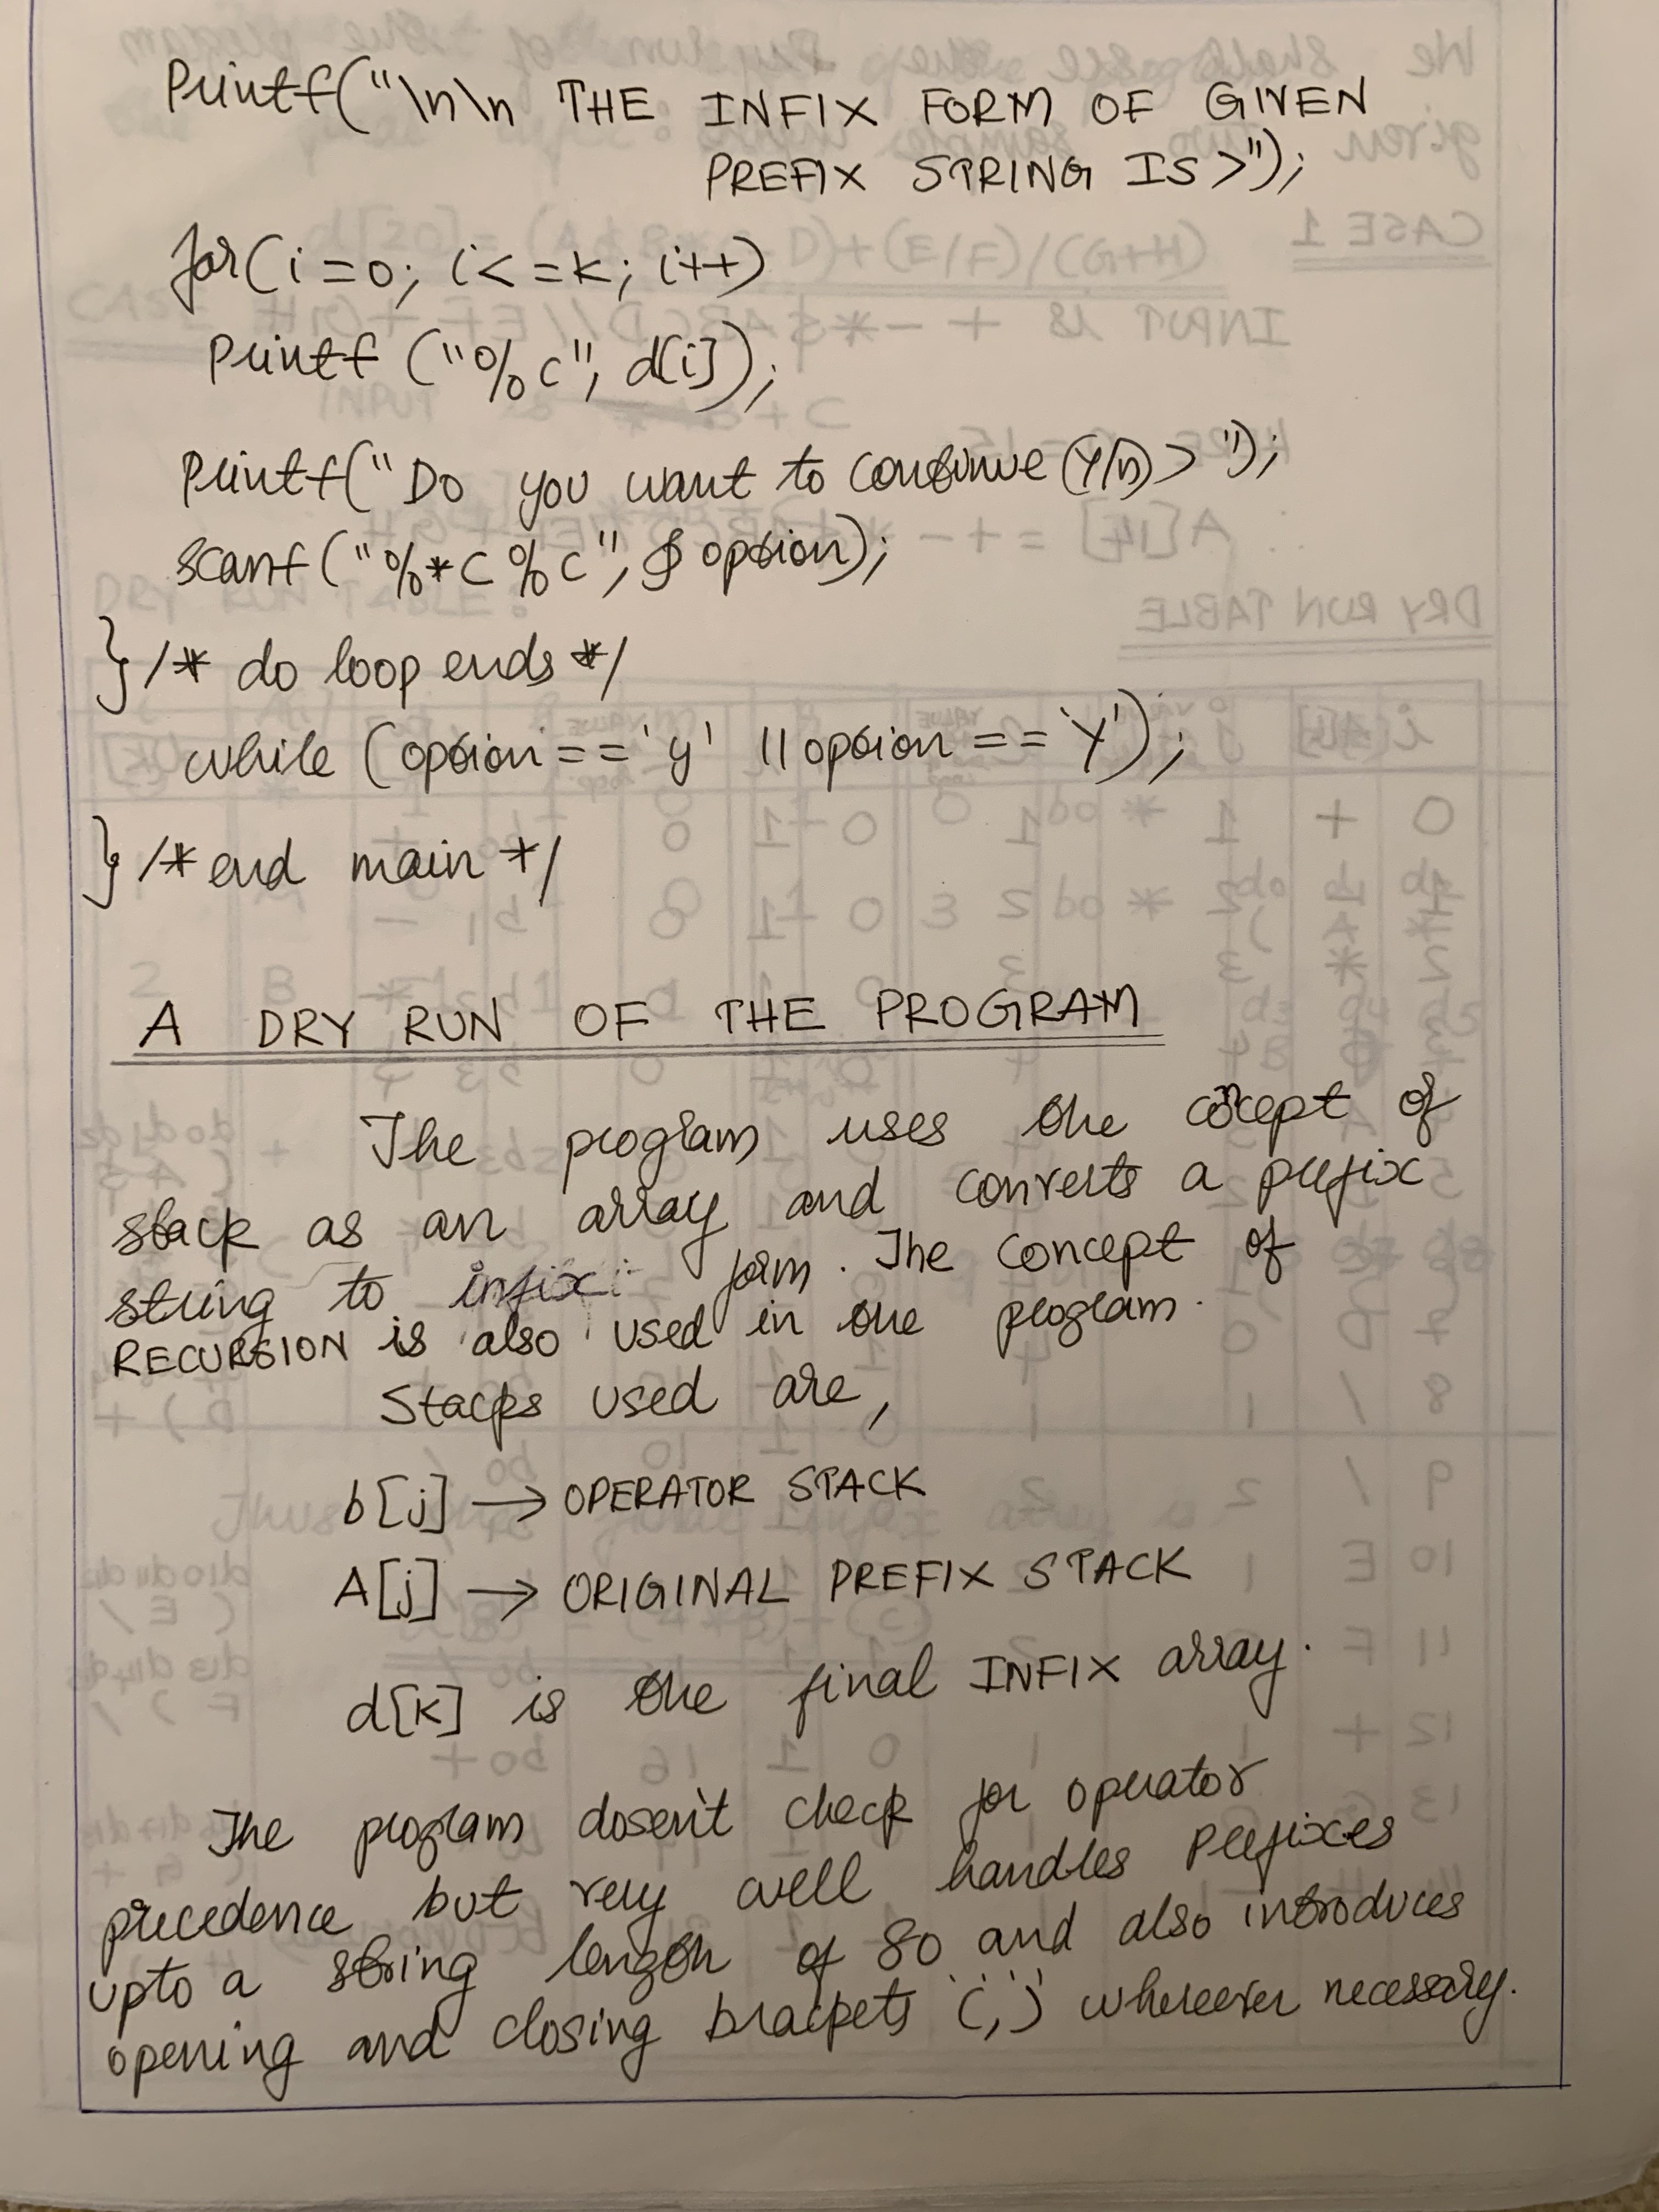 Printf("\n\n THE INFIX FORM OF GIVEN
PREFIX STRING IS>");
for(i=0; i<=k; i++)
Printf ("%c", d[i]);
Printf("Do you want to continue (Y/n)> ");
scanf("%*c %c", & option);
} /* do loop ends */
while (option=='y' || option == 'Y');
} /* end main */
A DRY RUN OF THE PROGRAM
The program uses the concept of
stack as an array and converts a prefix
string to infix form. The concept of
RECURSION is also used in the program.
Stacks used are,
b[j] → OPERATOR STACK
A[j] → ORIGINAL PREFIX STACK
d[k] is the final INFIX array.
The program dosen't check for operator
precedence but very well handles prefixes
upto a string length of 80 and also introduces
opening and closing brackets '(',')' whereever necessary.